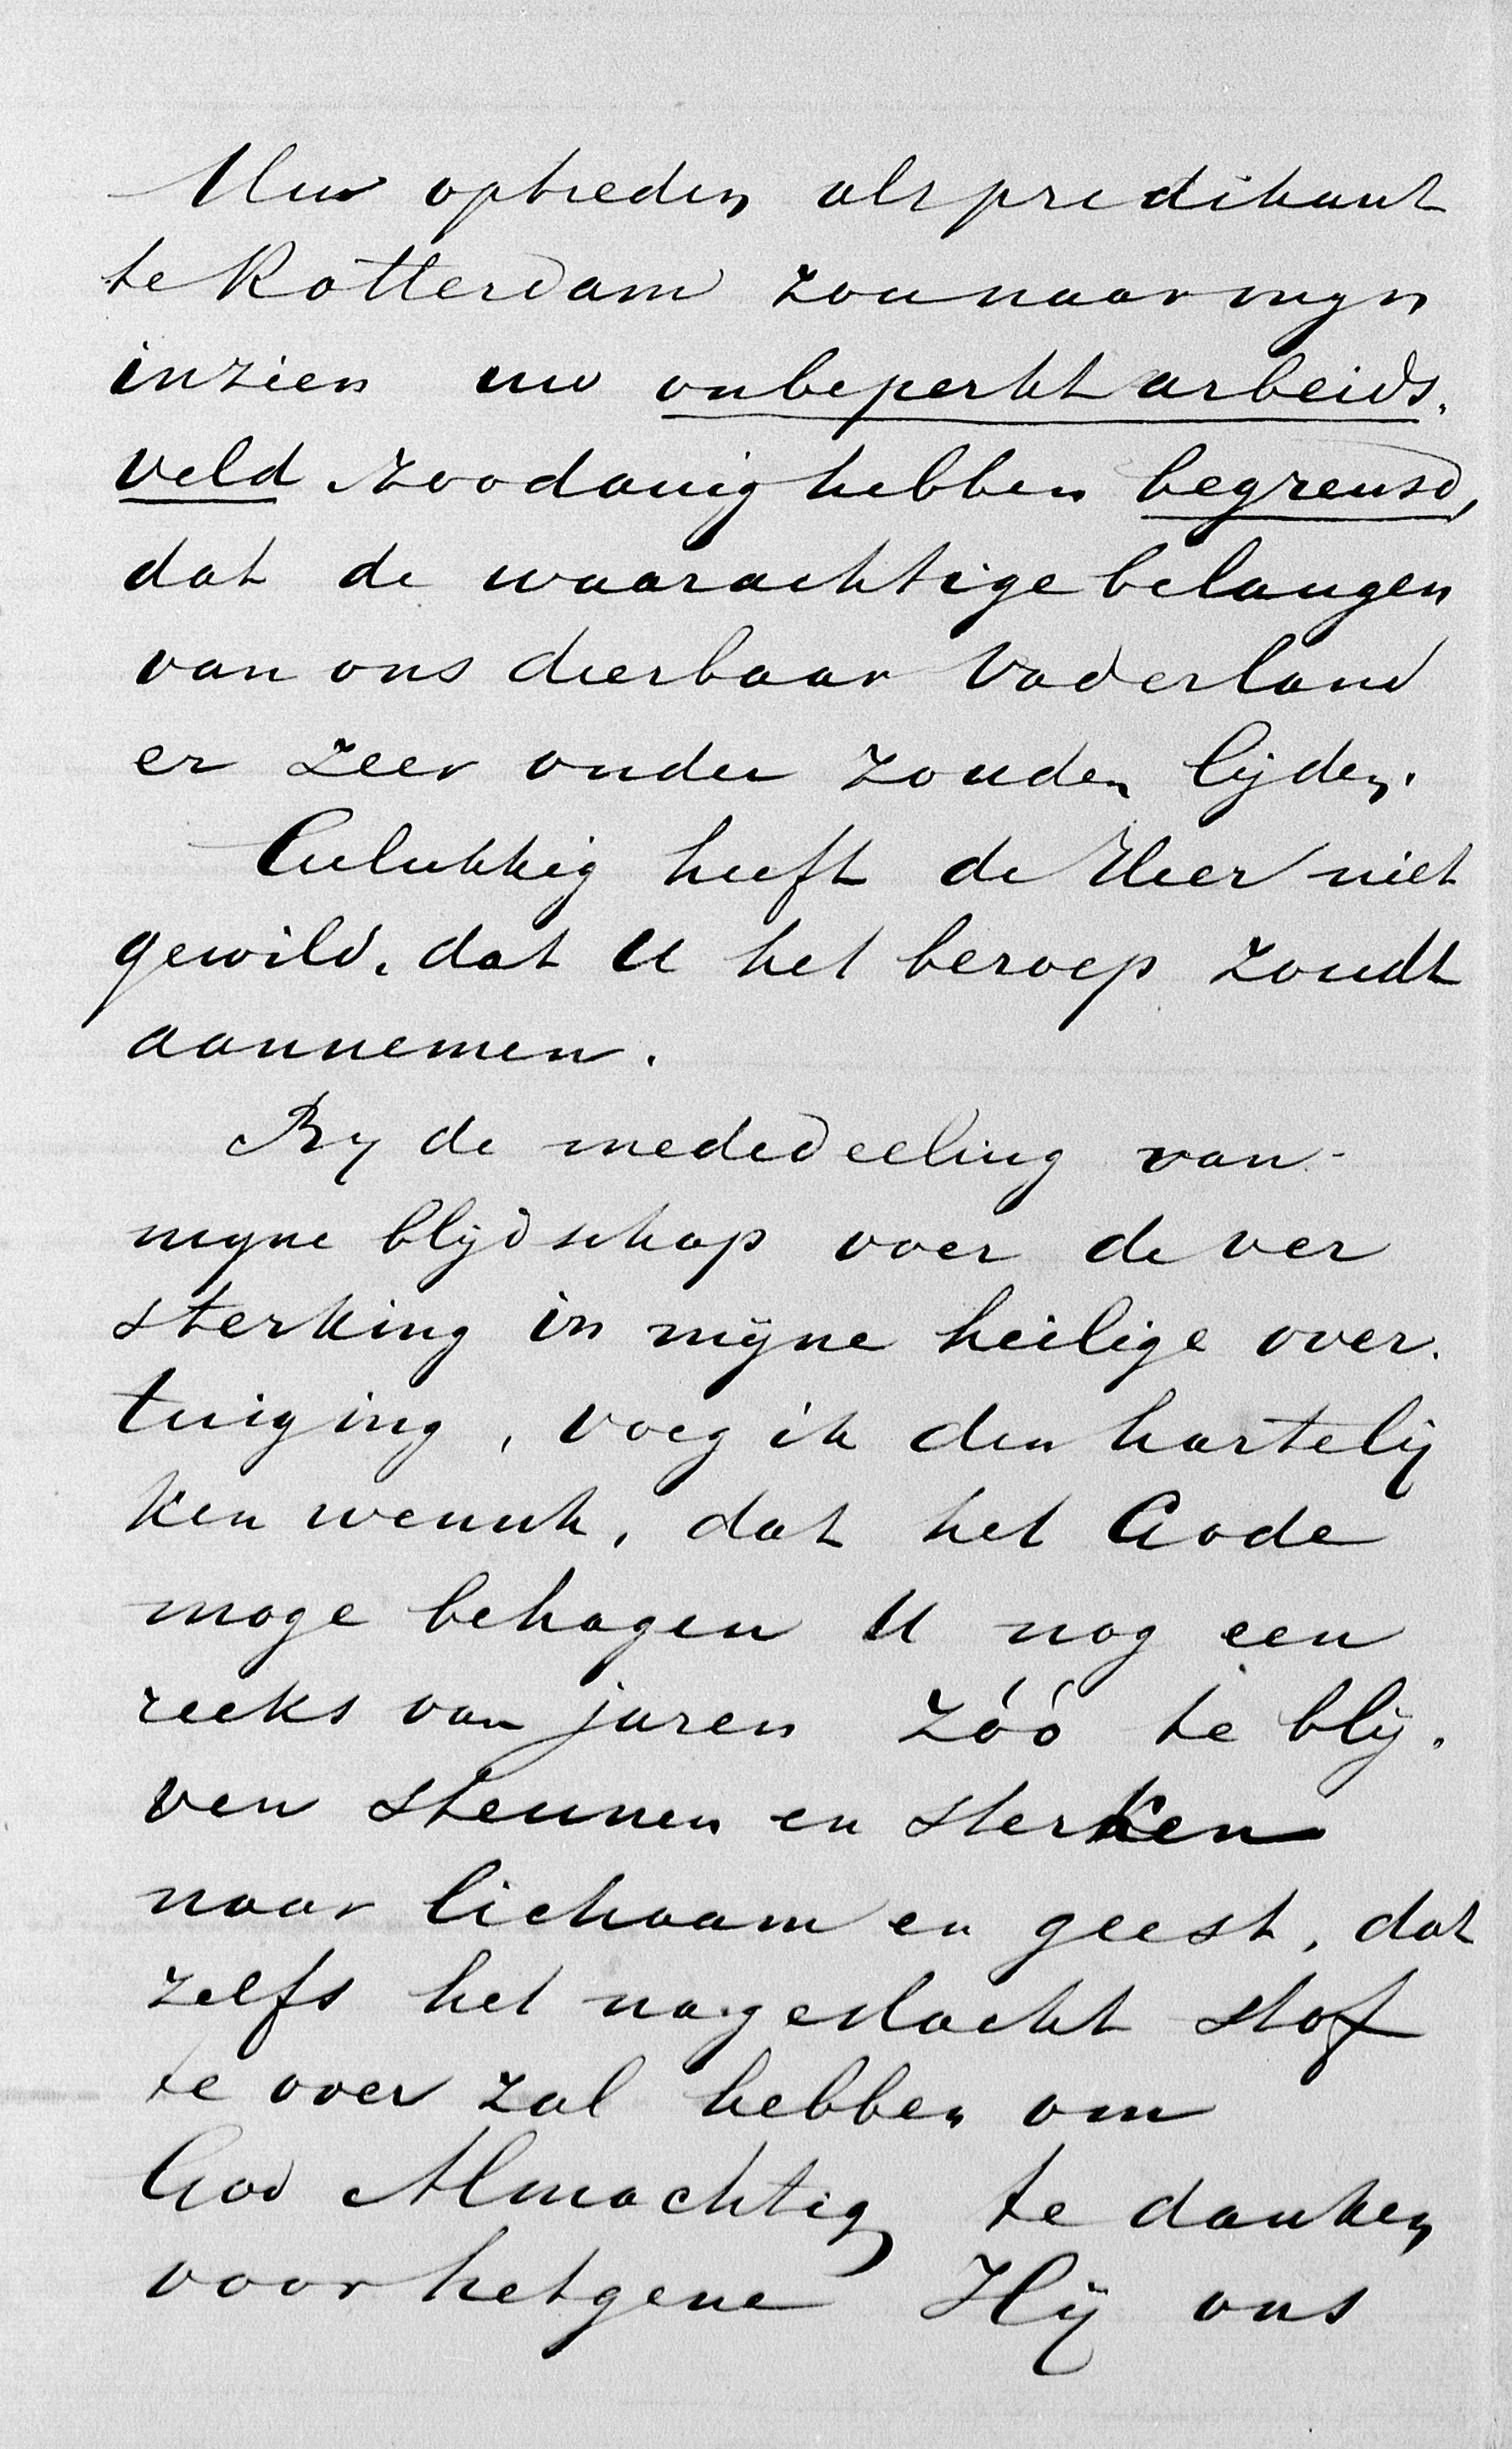 Uw optreden als predikant
te Rotterdam zou naar mijn
inzien uw onbeperkt arbeids-
veld zoodanig hebben begrensd,
dat de waarachtige belangen
van ons dierbaar Vaderland
er zeer onder zouden lijden.
Gelukkig heeft de Heer niet
gewild, dat U het beroep zoudt
aannemen.
Bij de mededeeling van
mijne blijdschap over de ver
sterking in mijne heilige over-
tuiging, voeg ik den hartelij
ken wensch, dat het Gode
moge behagen U nog een
reeks van jaren zóó te blij-
ven steunen en sterken
naar lichaam en geest, dat
zelfs het nageslacht stof
te over zal hebben om
God Almachtig te danken
voor hetgene Hij ons